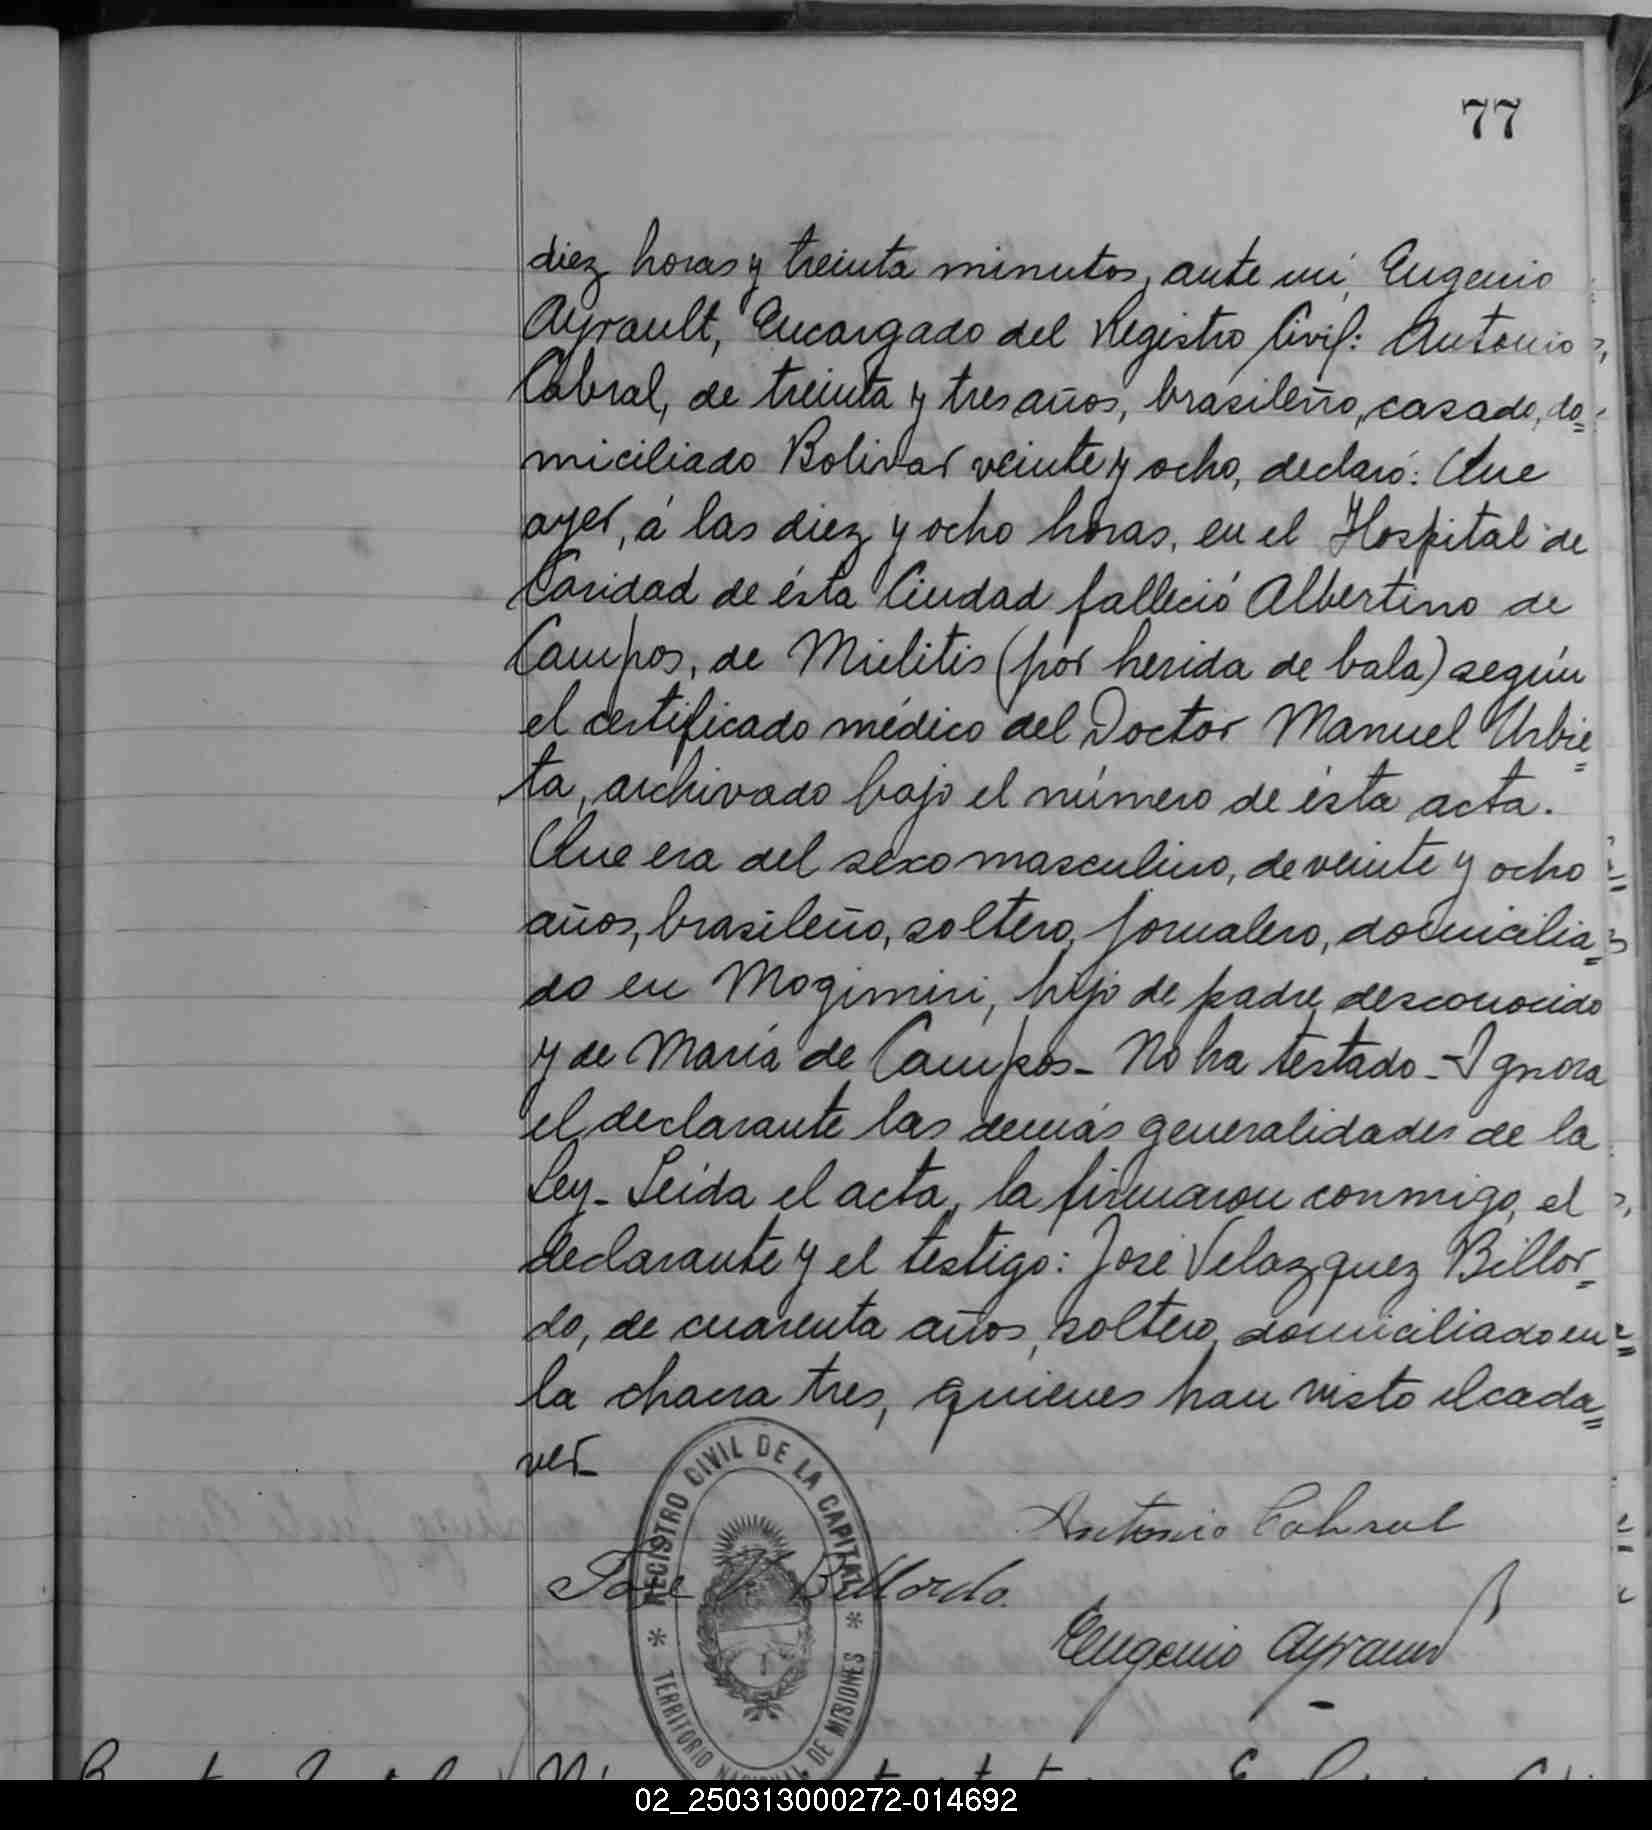 77
diez horas y treinta minutos, ante mi, Eugenio
Ayrault, Encargado del Registro Civil: Antonio
Cabral, de treinta y tres años, brasileño, casado, do=
miciliado Bolivar veinte y ocho, declaró: Que
ayer, á las diez y ocho horas, en el Hospital de
Caridad de ésta Ciudad falleció Albertino de
Campos, de Mielitis (por herida de bala) según
el certificado médico del Doctor Manuel Urbie=
ta, archivado bajo el número de ésta acta.
Que era del sexo masculino, de veinte y ocho
años, brasileño, soltero, jornalero, domicilia=
do en Mogimiri, hijo de padre desconocido
y de María de Campos_ No ha testado_ Ignora
el declarante las demás generalidades de la
Ley_ Leída el acta, la firmaron conmigo, el
declarante y el testigo: José Velazquez Billor=
do, de cuarenta años, soltero, domiciliado en
la chacra tres, quienes han visto el cada=
ver_
Antonio Cabral
José V. Billordo.
Eugenio Ayrault
REGISTRO CIVIL DE LA CAPITAL
* TERRITORIO NACIONAL DE MISIONES *
02_250313000272-014692